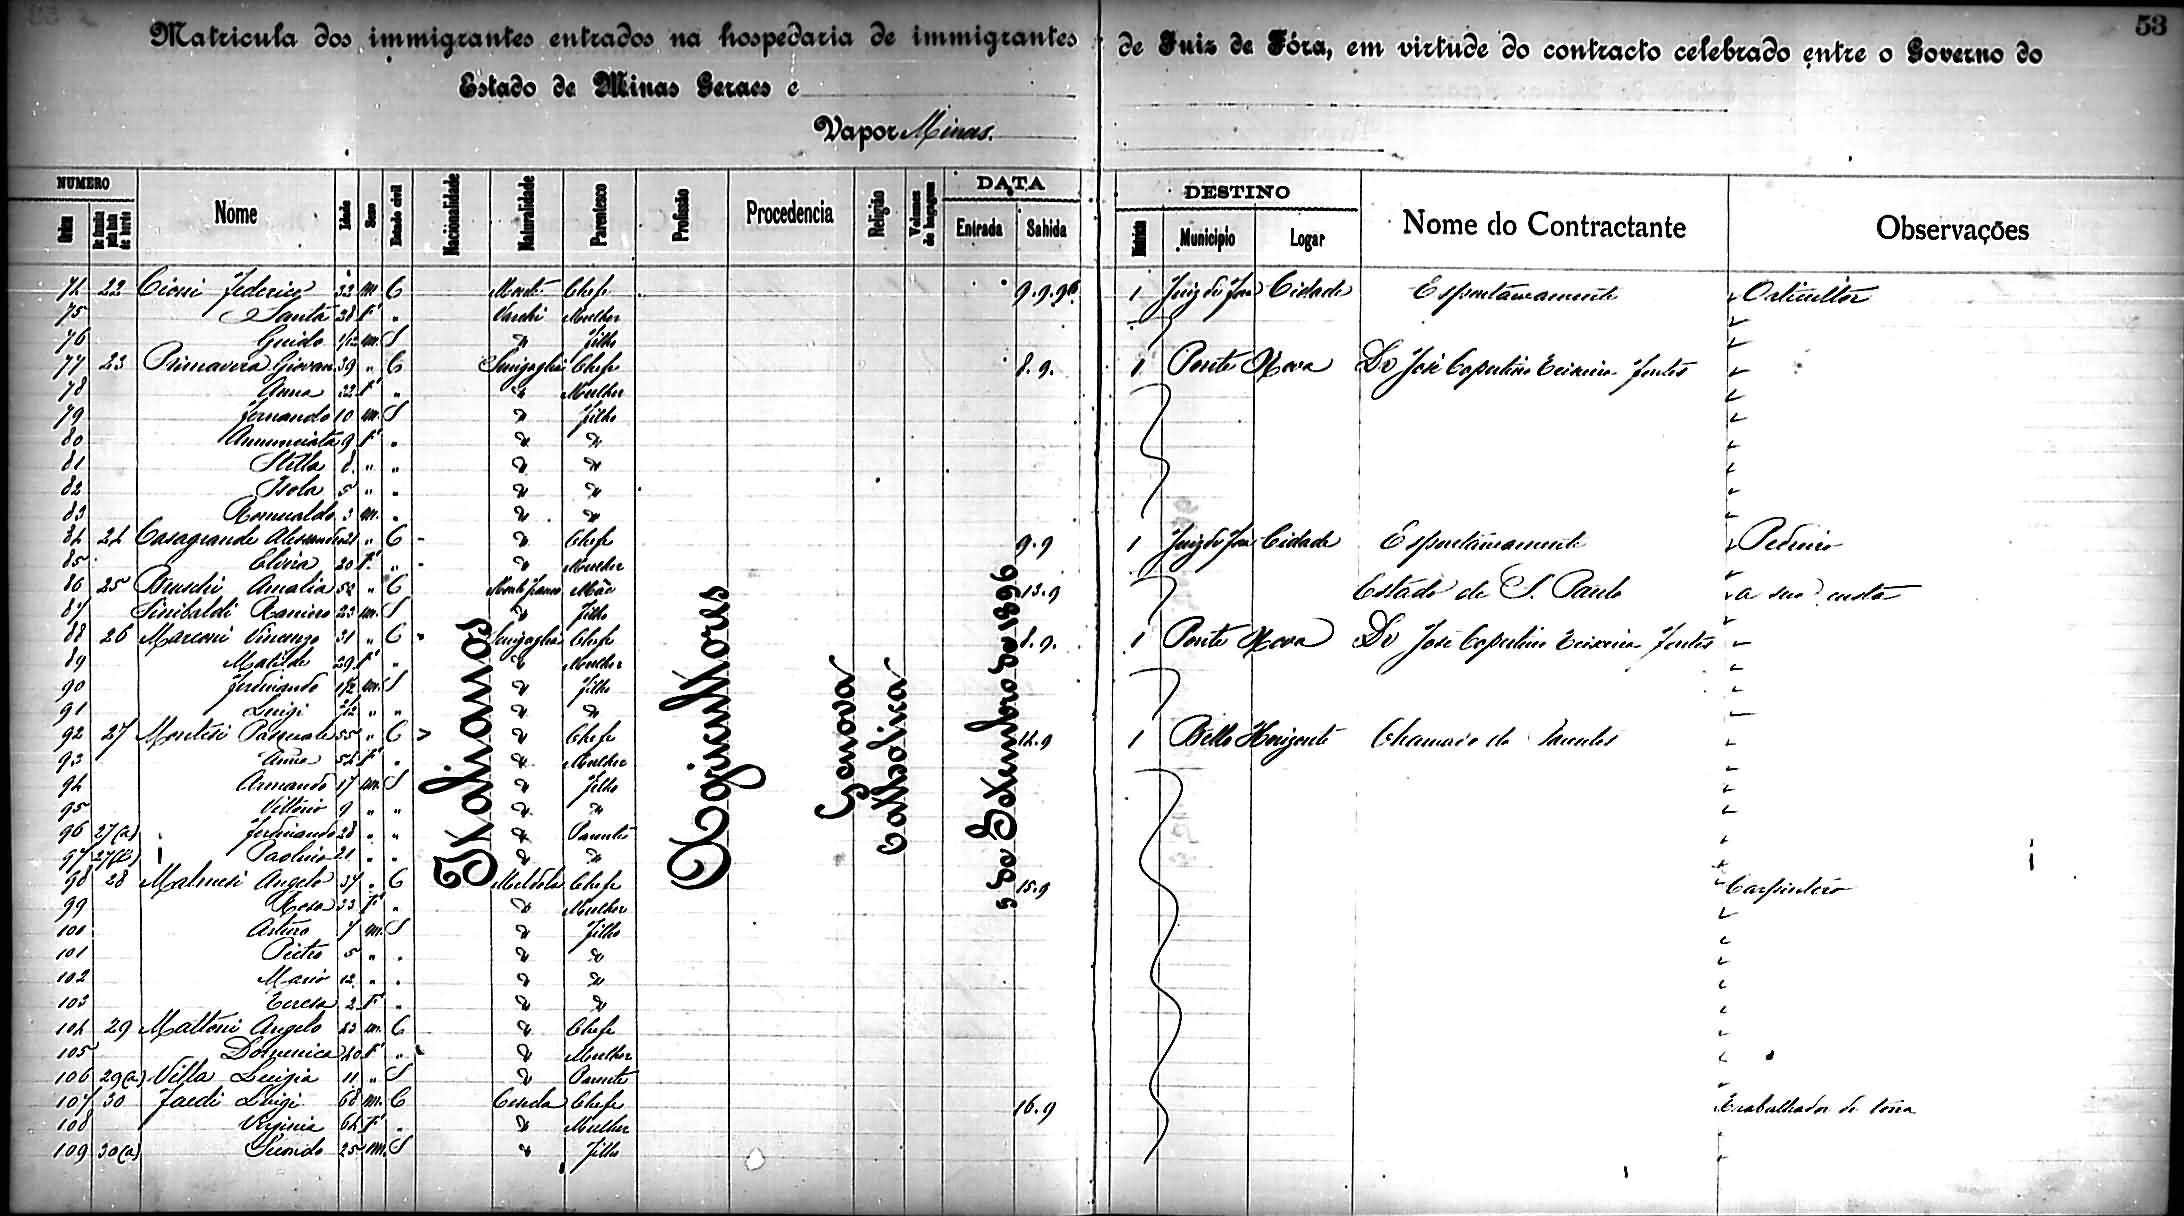 53
Matricula dos immigrantes entrados na hospedaria de immigrantes de Juiz de Fóra, em virtude do contracto celebrado entre o Governo do
Estado de Minas Geraes e
Vapor Minas.
NUMERO Nome Idade Sexo Estado civil Nacionalidade Naturalidade Parentezco Profissão Procedencia Religião Volumes de bagagem DATA DESTINO Nome do Contractante Observações
Ordem Entrada Sahida Municipio Logar
74 22 Cioni Federico 32 m C Monte Chefe 9.9.96 1 Juiz de Fora Cidade Espontaneamente Orticultor
75 Santa 28 F " Varchi Mulher
76 Guido m S " Filho
77 23 Primavera Giovan. 39 " C Sinigaglia Chefe 8.9. 1 Ponte Nova Dr José Cupertino Teixeira Fontes
78 Anna 32 F " " Mulher
79 Fernando 10 m. S " Filho
80 Annunciata 9 F " " "
81 Stella 8 " " " "
82 Isola 5 " " " "
83 Romualdo 3 m. " " "
84 24 Casagrande Alessandro 21 " C " Chefe 9.9 1 Juiz de Fora Cidade Espontaneamente Pedreiro
85 Elvira 20 F. " " Mulher
86 25 Bruschi Amalia 52 " C Monte Mãe 13.9 Estado de S. Paulo a sua custa
87 Sinibaldi Ramiro 23 m. S " Filho
88 26 Marconi Vincenzo 31 " C Sinigaglia Chefe 8.9. 1 Ponte Nova Dr José Cupertino Teixeira Fontes
89 Matilde 29 F " " Mulher
90 Ferdinando m. S " Filho
91 Luigi " " " "
92 27 Montesi Pasquale 55 " C " Chefe 14.9 1 Bello Horizonte Chamado de Parentes
93 Anna 54 F " " Mulher
94 Armando 17 m. S " Filho
95 Vittorio 9 " " " "
96 27(a) Ferdinando 28 " " " Parente
97 27(b) Paolino 21 " " " "
98 28 Malmesi Angelo 37 " C Meldola Chefe 15.9 Carpinteiro
99 Rosa 33 F " " Mulher
100 Arturo 7 m. S " Filho
101 Pietro 5 " " " "
102 Mario " " " "
103 Teresa 2 F " " "
104 29 Mattoni Angelo 43 m. C " Chefe
105 Domenica 40 F " " Mulher
106 29(a) Villa Luigia 11 " S " Parente
107 30 Luigi 68 m. C Chefe 16.9 Trabalhador de terra
108 Virginia 64 F " " Mulher
109 30(a) Secondo 25 m. S " Filho
Italianos
Agricultores
Genova
Catholica
5 de Setembro de 1896